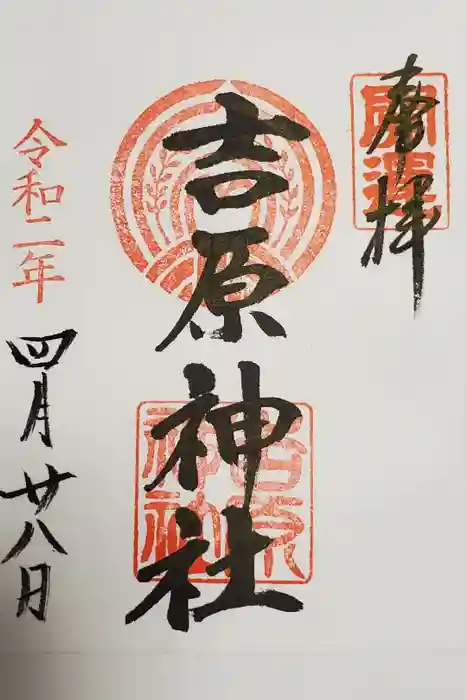 奉拝
開運
吉原神社
吉原神社
令和二年
四月廿八日